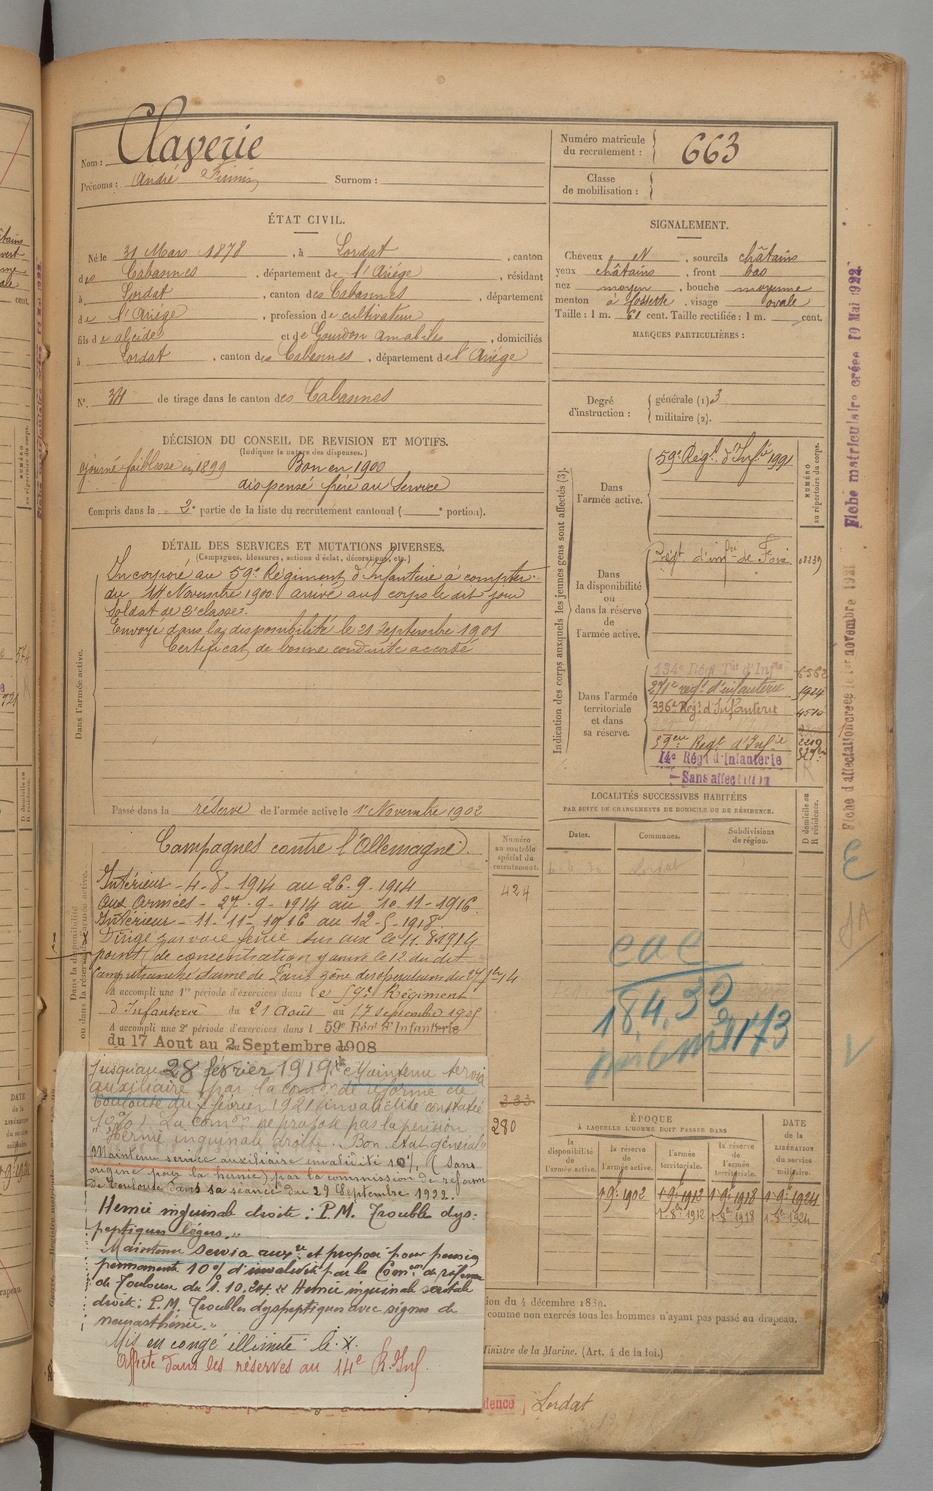 Nom : Claverie
Prénoms : André Firmin Surnom :
Numéro matricule du recrutement : 663
Classe de mobilisation :
ÉTAT CIVIL.
Né le 31 Mars 1878, à Lordat, canton
des Cabannes, département de l'Ariège, résidant
à Lordat, canton des Cabannes, département
de l'Ariège, profession de cultivateur
fils d'Alcide et de Gourdon Amabiles, domiciliés
à Lordat, canton des Cabannes, département de l'Ariège
N° 34 de tirage dans le canton des Cabannes
SIGNALEMENT.
Cheveux N, sourcils châtains
yeux châtains, front bas
nez moyen, bouche moyenne
menton à fossette, visage ovale
Taille : 1 m. 61 cent. Taille rectifiée : 1 m. cent.
MARQUES PARTICULIÈRES :
Degré d'instruction : générale (1) 3
militaire (2).
DÉCISION DU CONSEIL DE REVISION ET MOTIFS.
(Indiquer la nature des dispenses.)
ajourné faiblesse en 1899 Bon en 1900
dispensé frère au service
Compris dans la 2e partie de la liste du recrutement cantonal ( e portion).
DÉTAIL DES SERVICES ET MUTATIONS DIVERSES.
(Campagnes, blessures, actions d'éclat, décorations, etc.)
Dans l'armée active.
Incorporé au 59e Régiment d'Infanterie à compter
du 14 Novembre 1900 arrivé au corps le dit jour
Soldat de 2e classe.
Envoyé dans la disponibilité le 21 Septembre 1901
Certificat de bonne conduite accordé
Passé dans la réserve de l'armée active le 1er Novembre 1902
Indication des corps auxquels les jeunes gens sont affectés (3).
NUMÉRO au répertoire du corps.
Dans l'armée active.
59e Régt d'Infrie 1991
Dans la disponibilité ou dans la réserve de l'armée active.
Régt d'infrie de Foix 02239
Dans l'armée territoriale et dans sa réserve.
134e Régt Tal d'Infie 6562
271e régt d'infanterie 1924
336e Régt d'Infanterie 4510
59eme Régt d'Infie 2219
14e Régt d'Infanterie
Sans affectation
LOCALITÉS SUCCESSIVES HABITÉES
PAR SUITE DE CHANGEMENTS DE DOMICILE OU DE RÉSIDENCE.
Dates. Communes. Subdivisions de région.
D domicile ou R résidence.
Lordat
Campagnes contre l'Allemagne
Numéro au contrôle spécial du recrutement.
424
Intérieur - 4-8-1914 au 26-9-1914
Aux Armées - 27-9-1914 au 10-11-1916
Intérieur - 11-11-1916 au 12-5-1918
Dirigé par voie ferrée sur aux le 11.8.1914
point de concentration y arrivé le 12 du dit
Camp retranché d'armée de Paris zône des opérations du 27 7bre 14
A accompli une 1re période d'exercices dans le 59e Régiment
d'Infanterie du 21 Août au 17 septembre 1905
A accompli une 2e période d'exercices dans l 59e Régt d'Infanterie
du 17 Aout au 2 Septembre 1908
333
280
jusqu'au 28 février 1919. Maintenu service
auxiliaire par la comon de réforme de
Toulouse du 7 février 1921 invalidité constatée
10%. La comon ne propose pas la pension
"Hernie inguinale droite. Bon état général"
Maintenu service auxiliaire invalidité 10% (sans
origine pour la hernie) par la commission de réforme
de Toulouse dans sa séance du 29 Septembre 1922.
Hernie inguinale droite : P.M. Trouble dys-
peptiques légers.
Maintenu service auxre et proposé pour pension
permanente 10% d'invalidité par la Comon de réforme
de Toulouse du 1.10.24 "Hernie inguinale scrotale
droite : P.M. Troubles dyspeptiques avec signes de
neurasthénie."
Mis en congé illimité le X
Affecté dans les réserves au 14e R. Inf.
cac
184,30
1173
ÉPOQUE
À LAQUELLE L'HOMME DOIT PASSER DANS
la disponibilité de l'armée active.
la réserve de l'armée active.
l'armée territoriale.
la réserve de l'armée territoriale.
DATE de la LIBÉRATION du service militaire.
1 9bre 1902 1 9bre 1912 1 9bre 1918 1 9bre 1924
1 8bre 1912 1 8bre 1918 1 8bre 1924
ion du 4 décembre 1889.
comme non exercés tous les hommes n'ayant pas passé au drapeau.
Ministre de la Marine. (Art. 4 de la loi.)
dence, Lordat
Fiche matriculaire créée 10 Mai 1922
Fiche d'affectation créée le 1er novembre 1921